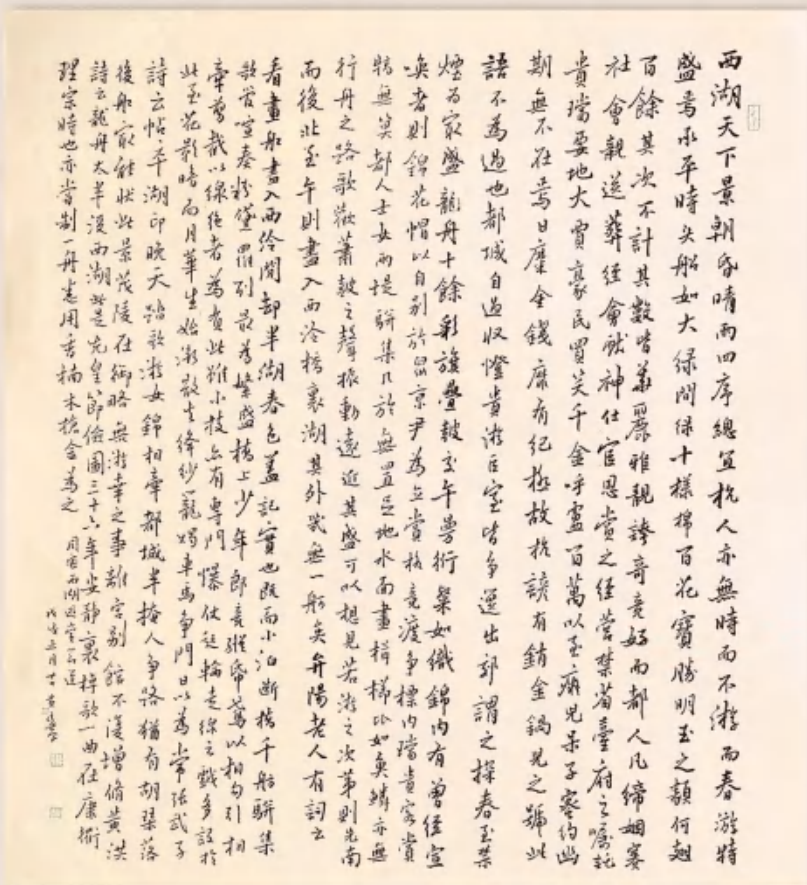 西湖天下景朝昏晴雨四序總宜杭人亦無時而不游而春游特
盛焉承平時头船如大綠間綠十樣錦百花寶勝明玉之類何翅
百餘其次不計其數皆華麗雅靚誇奇競好而都人凡締姻賽
社會親送葬經會獻神仕宦恩賞之經營禁省臺府之囑託
貴璫要地大賈豪民買笑千金呼盧百萬以至癡兒呆子密約幽
期無不在焉日糜金錢靡有紀極故杭諺有銷金鍋兒之號此
語不為過也都城自過收燈貴游巨室皆争先出郊謂之探春至禁
煙為最盛龍舟十餘彩旗疊鼓交午曼衍粲如織錦內有曾經宣
喚者則錦花帽以自别於眾京尹為立賞格競渡争標內璫貴客賞
犒無算都人士女兩堤駢集几於無置足地水面畫楫櫛比如魚鱗亦無
行舟之路歌歡簫鼓之聲振動遠近其盛可以想見若游之次第則先南
而後北至午則盡入西泠橋裏湖其外幾無一舸矣弁陽老人有詞云
看畫船盡入西泠閒却半湖春色蓋紀實也既而小泊斷橋千舫駢集
歌管喧奏粉黛羅列最為繁盛橋上少年郎競縱紙鳶以相勾引相
牽剪截以線絕者為負此雖小技亦有專門爆仗起輪走線之戲多設於
此至花影暗而月華生始漸散去絳紗籠燭車馬争門日以為常張武子
詩云帖帖平湖印晚天踏歌游女錦相牽都城半掩人争路猶有胡琴落
後船最能狀此景茂陵在御略無游幸之事離宮别館不復增修黄洪
詩云龍舟太半没西湖此是先皇節儉圖三十六年安静裏棹歌一曲在康衢
理宗時也亦嘗制一舟悉用香楠木搶金為之
周密西湖游賞一道